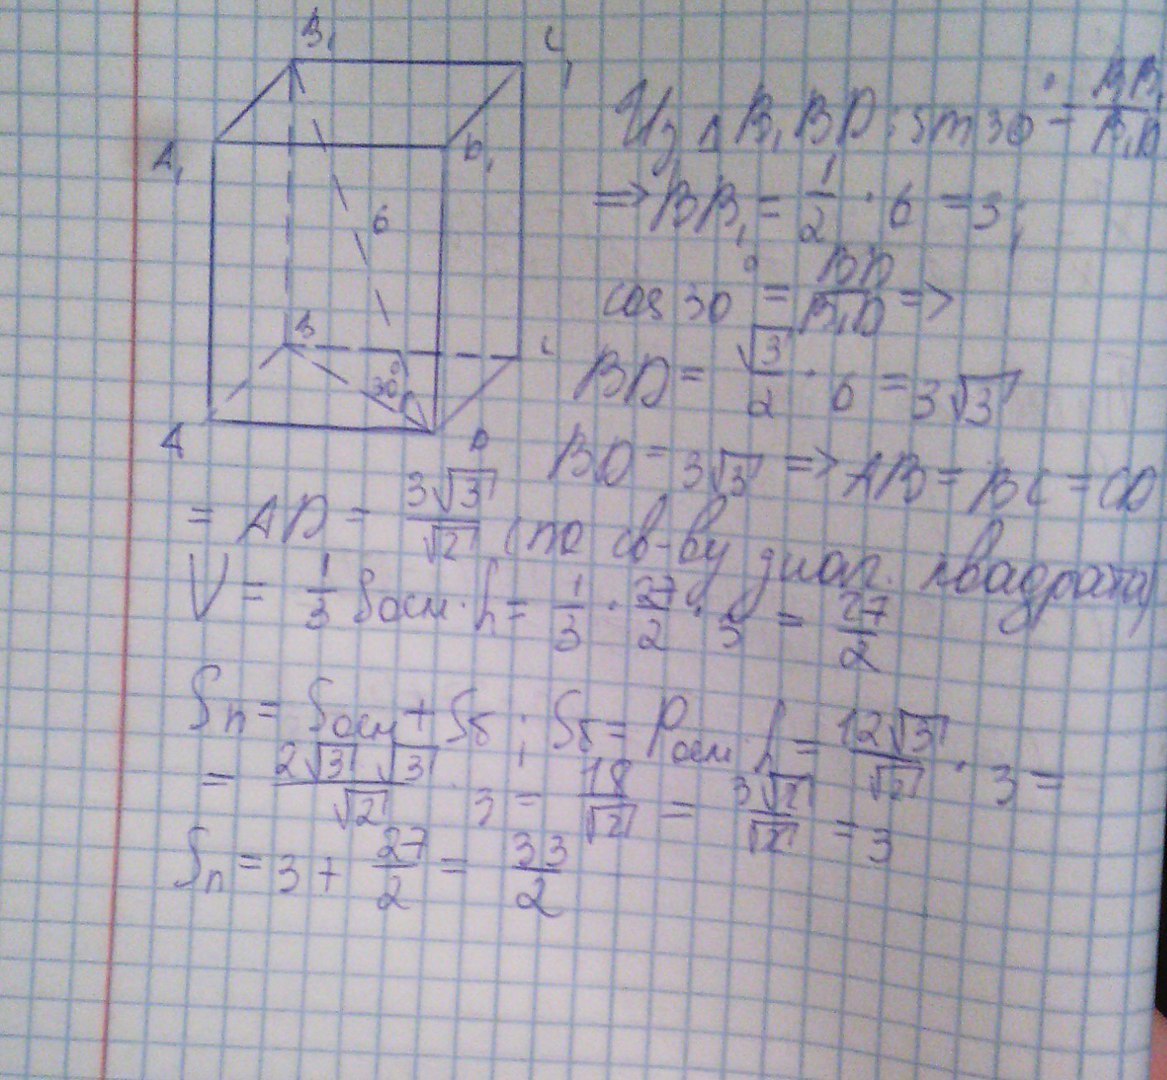 B₁
C₁
A₁
D₁
6
B
C
30°
A
D
Из Δ B₁BD: sin30° = BB₁/B₁D
=> BB₁ = 1/2 · 6 = 3;
cos 30° = BD/B₁D =>
BD = √3/2 · 6 = 3√3
BD = 3√3 => AB = BC = CD
= AD = 3√3/√2 (по св-ву диаг. квадрата)
V = 1/3 Sосн · h = 1/3 · 27/2 · 3 = 27/2
Sп = Sосн + Sб ; Sб = Pосн · h = 12√3/√2 · 3 =
= 2√3 √3/√2 · 3 = 18/√2 = 3√2/√2 = 3
Sп = 3 + 27/2 = 33/2